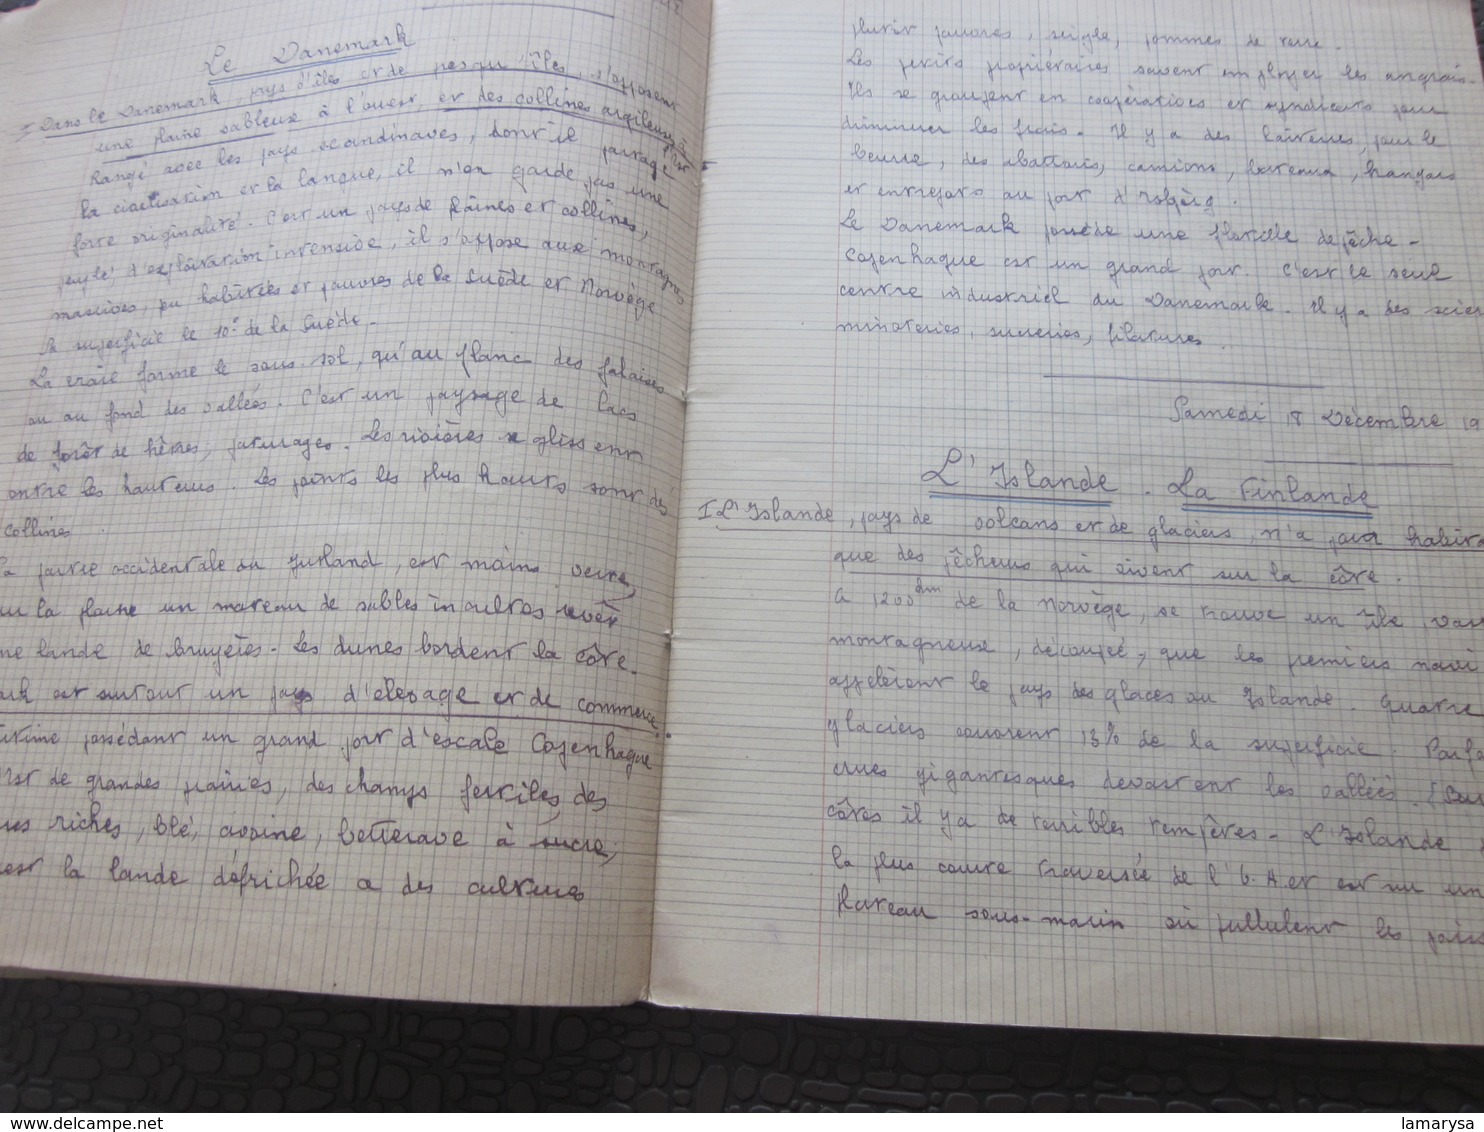 Le Danemark
I Dans le Danemark, pays d'îles et de presqu'îles, s'opposent
une plaine sableuse à l'ouest, et des collines argileuses à l'est
Rangé avec les pays scandinaves, dont il partage
la civilisation et la langue, il n'en garde pas une
forte originalité. C'est un pays de plaines et collines,
peuplé, d'exploitation intensive, il s'oppose aux montagnes
massives, peu habitées et pauvres de la Suède et Norvège
Sa superficie le 10e de la Suède.
La craie forme le sous sol, qu'au flanc des falaises
ou au fond des vallées. C'est un paysage de lacs
de forêt de hêtres, paturages. Les rivières se glissent
entre les hauteurs. Les points les plus hauts sont des
collines.
partie occidentale du Jutland, est moins verte,
la plaine un manteau de sables incultes revêt
lande de bruyères. Les dunes bordent la côte.
est surtout un pays d'élevage et de commerce.
possédant un grand port d'escale Copenhague
de grandes prairies, des champs fertiles, des
riches, blé, avoine, betterave à sucre,
la lande défrichée a des cultures
plutôt pauvres, seigle, pommes de terre.
Les petits propriétaires savent employer les engrais.
Ils se groupent en coopératives et syndicats pour
diminuer les frais. Il y a des laiteries, pour le
beurre, des abattoirs, camions, bateaux, hangars
et entrepots au port d'Esbjerg.
Le Danemark possède une flotille de pêche.
Copenhague est un grand port. C'est le seul
centre industriel du Danemark. Il y a des
minoteries, sucreries, filatures.
Samedi 18 Décembre 19
L'Islande. La Finlande
I L'Islande, pays de volcans et de glaciers, n'a pour
que des pêcheurs qui vivent sur la côte.
A 1200 km de la Norvège, se trouve un île
montagneuse, découpée, que les premiers
appelèrent le pays des glaces ou Islande. Quatre
glaciers couvrent 13% de la superficie.
crues gigantesques devastent les vallées.
côtes il y a de terribles tempêtes. L'Islande
la plus courte traversée de l' et est sur un
plateau sous-marin où pullulent les
lamarysa
delcampe.net